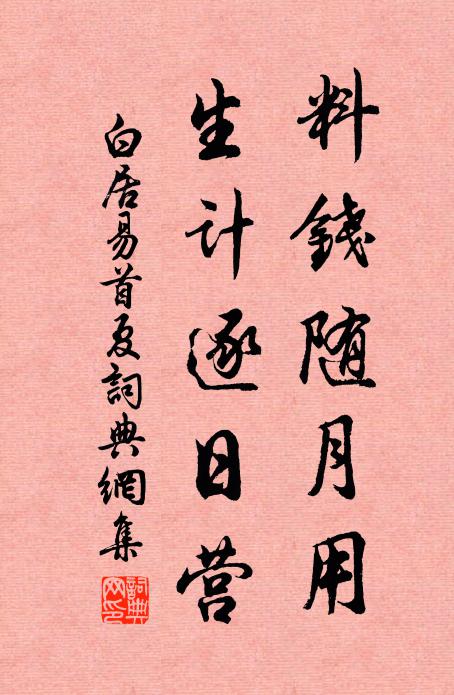 料錢随月用
生计逐日营
白居易首夏詞典網集
詞典網印